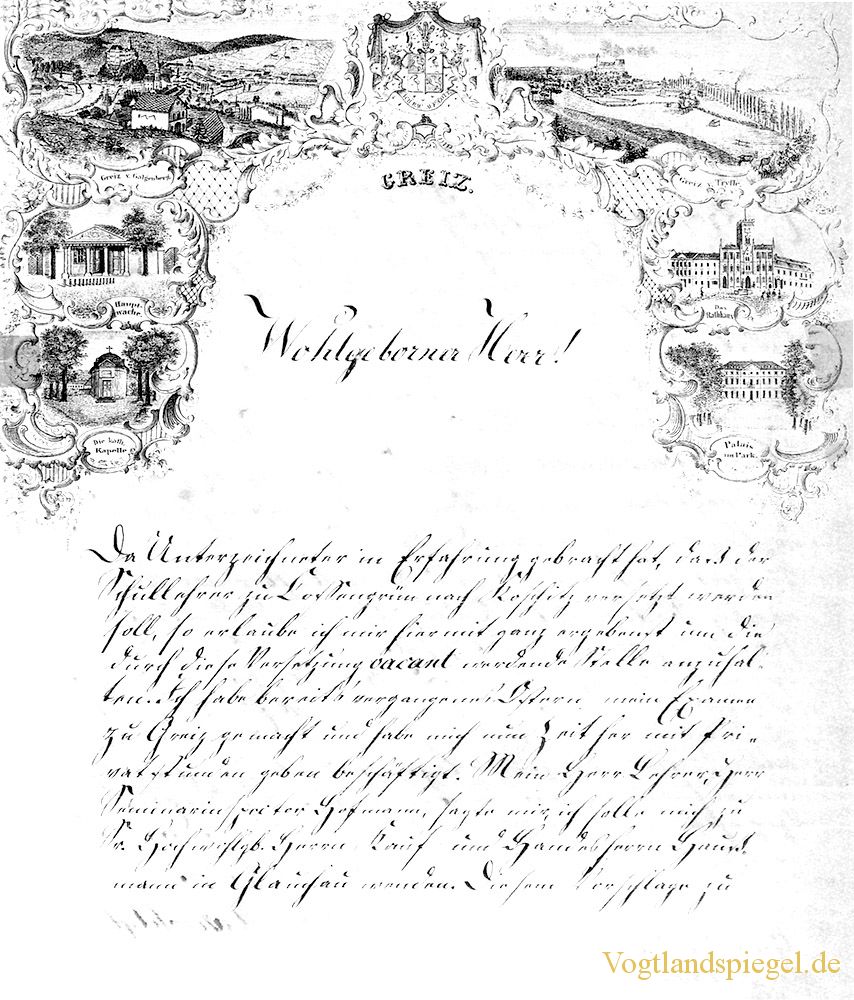 Greiz v. Galgenberg
GREIZ.
Greiz
Haupt
wache
Das
Rathhaus
Die kath.
Kapelle
Palais
im Park.
Wohlgeborner Herr!
Da Unterzeichneter in Erfahrung gebracht hat, dass der
Schullehrer zu Cossengrün nach Röschitz versetzt werden
soll, so erlaube ich mir hiermit ganz ergebenst um die
durch diese Versetzung vacant werdende Stelle anzuhal-
ten. Ich habe bereits vergangene Ostern mein Examen
zu Greiz gemacht und habe mich nun zeither mit Pri-
vatstunden geben beschäftigt. Mein Herr Lehrer, Herr
Seminarinspector Hofmann, sagte mir ich solle mich zu
Sr. Hochwohlgb. Herrn Kauf und Handelsherrn Haupt-
mann in Glauchau wenden. Diesem Vorschlage zu
Vogtlandspiegel.de